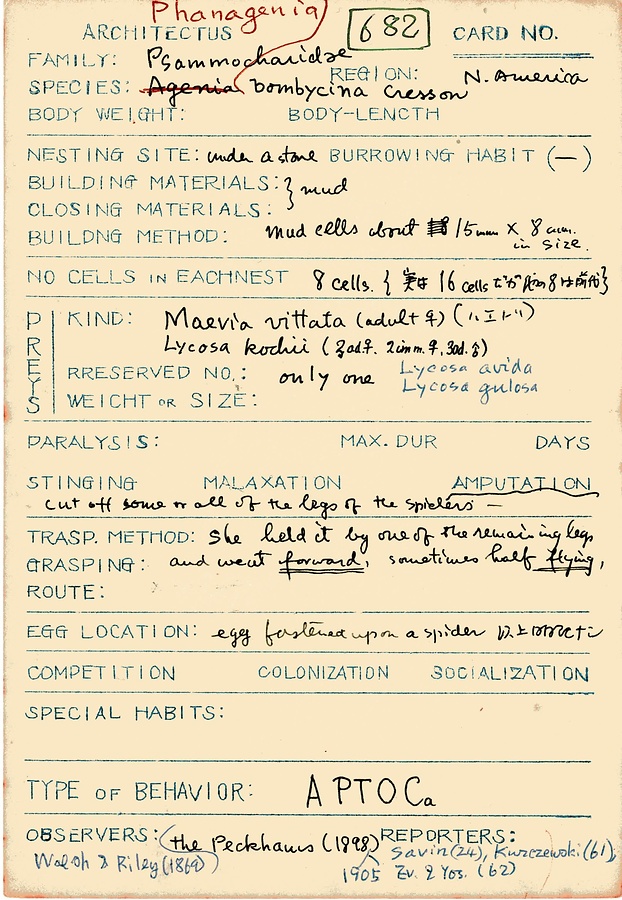 Phanagenia
ARCHITECTUS 682 CARD NO.
FAMILY: Psammocharidae
REGION: N. America
SPECIES: Agenia bombycina Cresson
BODY WEIGHT: BODY-LENGTH
NESTING SITE: under a stone BURROWING HABIT (—)
BUILDING MATERIALS: } mud
CLOSING MATERIALS:
BUILDNG METHOD: mud cells about 15mm X 8 mm.
in size.
NO CELLS IN EACHNEST 8 cells. { 実は 16 cells だが 8は前代}
PREYS
KIND: Maevia vittata (adult ♀) (ハエトリ)
Lycosa kochii (2ad.♀. 2imm.♀, 3ad.♂)
RRESERVED NO.: only one Lycosa avida
Lycosa gulosa
WEIGHT OR SIZE:
PARALYSIS: MAX. DUR DAYS
STINGING MALAXATION AMPUTATION
cut off some or all of the legs of the spiders —
TRASP. METHOD: She held it by one of the remaining legs
GRASPING: and went forward, sometimes half flying,
ROUTE:
EGG LOCATION: egg fastened upon a spider
COMPETITION COLONIZATION SOCIALIZATION
SPECIAL HABITS:
TYPE OF BEHAVIOR: APTOCa
OBSERVERS: the Peckhams (1898) REPORTERS:
Walsh & Riley (1869) 1905 Savin (24), Kurczewski (61),
Ev. & Yos. (62)